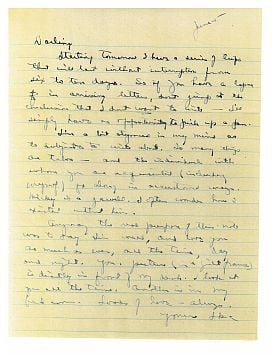 June
Darling
Starting tomorrow I have a series of trips
that will last without interruption from
six to ten days. So if you have a lapse
in arriving letters, don't jump at the
conclusion that I don't want to write - I'll
simply have no opportunity to pick up a pen.
I'm a bit in my mind as
to subjects to write about. So many
taboo - and the individuals with
whom you are acquainted (including
myself) go along in accustomed ways.
Mickey is a jewel. I often wonder how I
existed without him.
Anyway the real purpose of this note
was to say I'm well, and love you
as much as ever, all the time, day
and night. Your picture (
is directly in front of my desk. I look at
you all the time. Another is in my
bed room. Loads of love - always.
Yours Ike